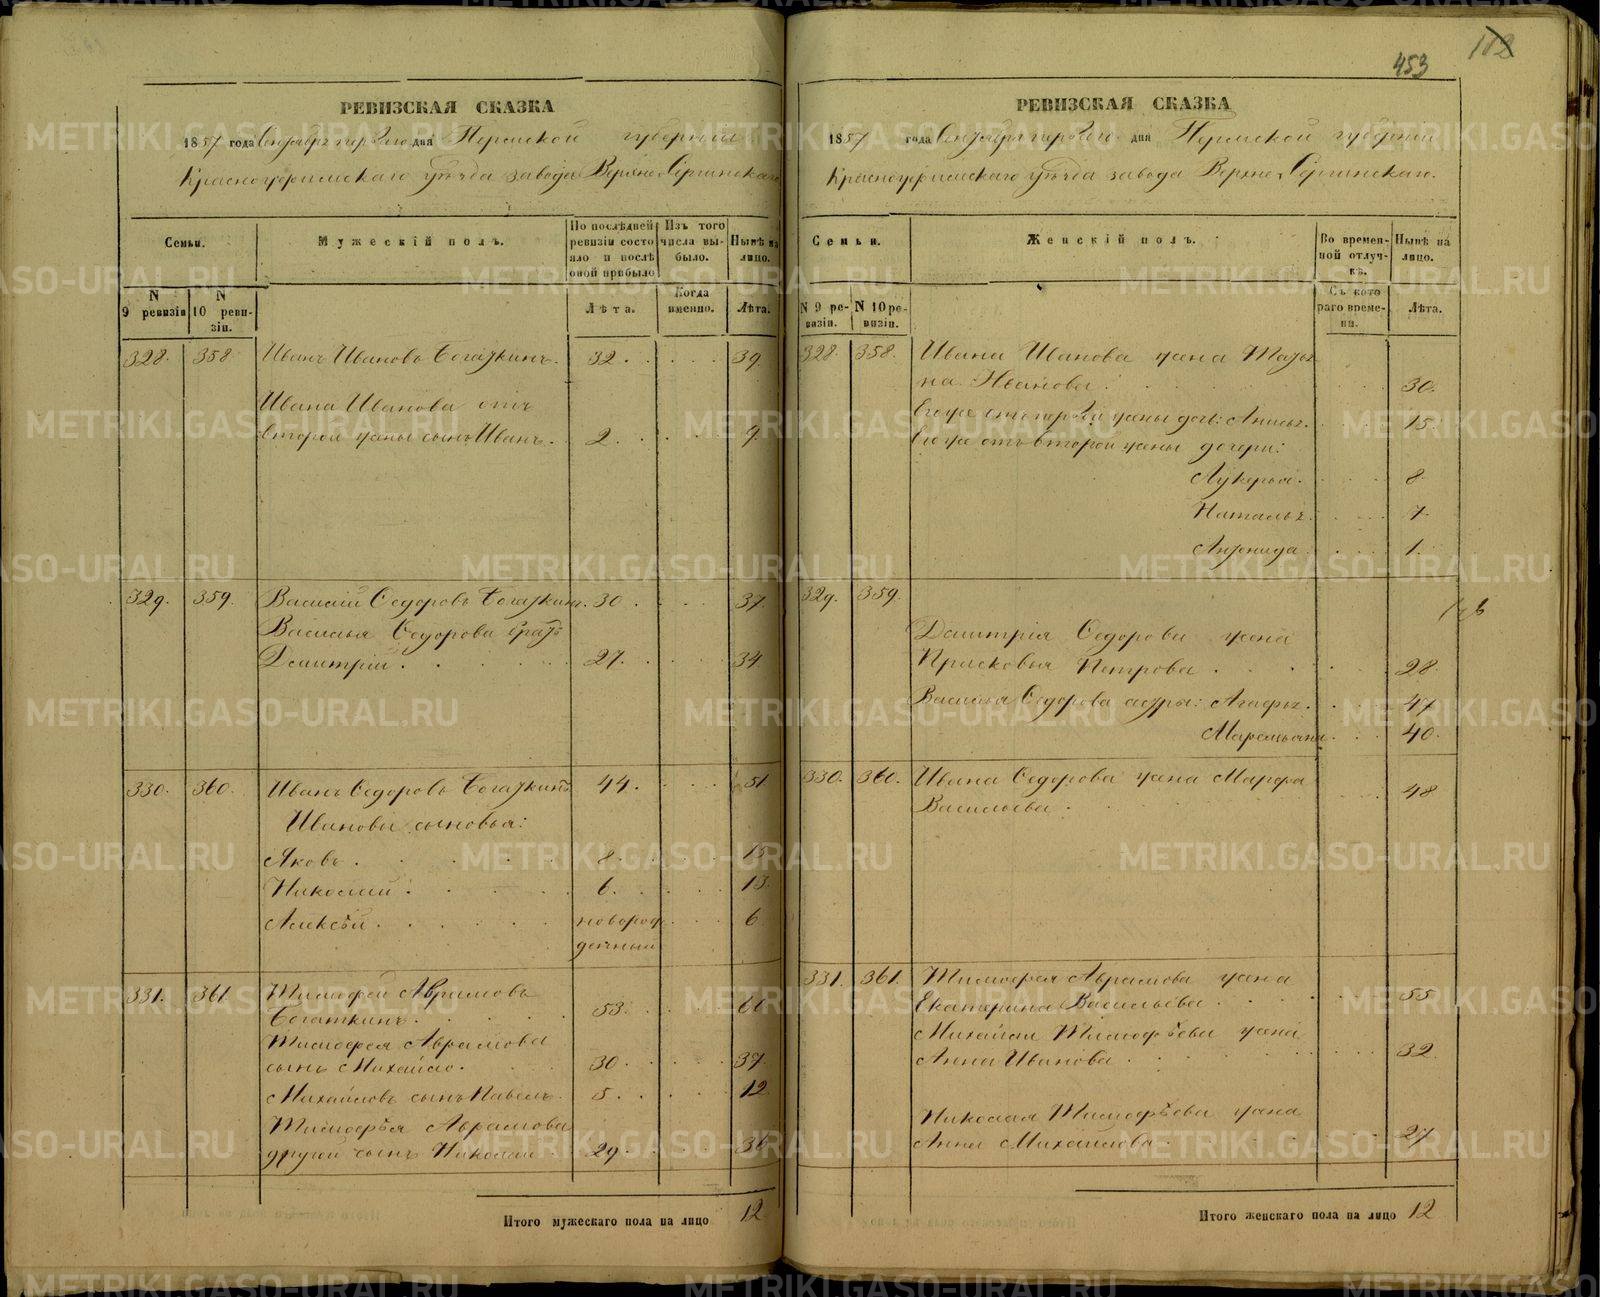 453
112
РЕВИЗСКАЯ СКАЗКА
1857 года Сентября первого дня Пермской губернии
Красноуфимскаго уѣзда завода Верхне-Сергинскаго
Семьи.
Мужескій полъ.
По послѣдней ревизіи состояло и послѣ оной прибыло
Изъ того числа выбыло.
Нынѣ на лицо.
N 9 ревизіи
N 10 ревизіи.
Лѣта.
Когда именно.
Лѣта.
328. 358. Иванъ Ивановъ Богаткинъ. 32. 39.
Ивана Иванова отъ
второй жены сынъ Иванъ. 2. 9
329. 359. Василій Ѳедоровъ Богаткинъ. 30. 37.
Василья Ѳедорова братъ
Дмитрій. 27. 34
330. 360. Иванъ Ѳедоровъ Богаткинъ 44. 51
Ивановы сыновья:
Яковъ. 8. 15
Николай. 6. 13
Алексѣй. новорож 6
денный
331. 361 Тимофей Аврамовъ
Богаткинъ. 53. 60
Тимофея Аврамова
сынъ Михайло. 30. 37.
Михайловъ сынъ Павелъ. 5. 12
Тимофѣя Аврамова
другой сынъ Николай. 29. 36
Итого мужескаго пола на лицо 12
РЕВИЗСКАЯ СКАЗКА
1857 года Сентября первого дня Пермской губерніи
Красноуфимскаго уѣзда завода Верхне-Сергинскаго.
Семьи.
Женскій полъ.
Во временной отлучкѣ.
Нынѣ на лицо.
N 9 ревизіи.
N 10 ревизіи.
Съ котораго времени.
Лѣта.
328. 358. Ивана Иванова жена Татья
на Иванова. 30.
Его же отъ первой жены дочь: Анисья. 15.
Его же отъ второй жены дочери:
Лукерья. 8
Наталья. 7.
Анфиида 1.
329. 359.
Дмитрія Ѳедорова жена
Прасковья Петрова. 28.
Василья Ѳедорова сестры: Агафья. 47
Маремьяна. 40.
330. 360. Ивана Ѳедорова жена Марфа
Васильева. 48
331. 361. Тимофея Аврамова жена
Екатерина Васильева. 55
Михайла Тимофѣева жена
Анна Иванова. 32.
Николая Тимофѣева жена
Анна Михайлова. 27
Итого женскаго пола на лицо 12
METRIKI.GASO-URAL.RU